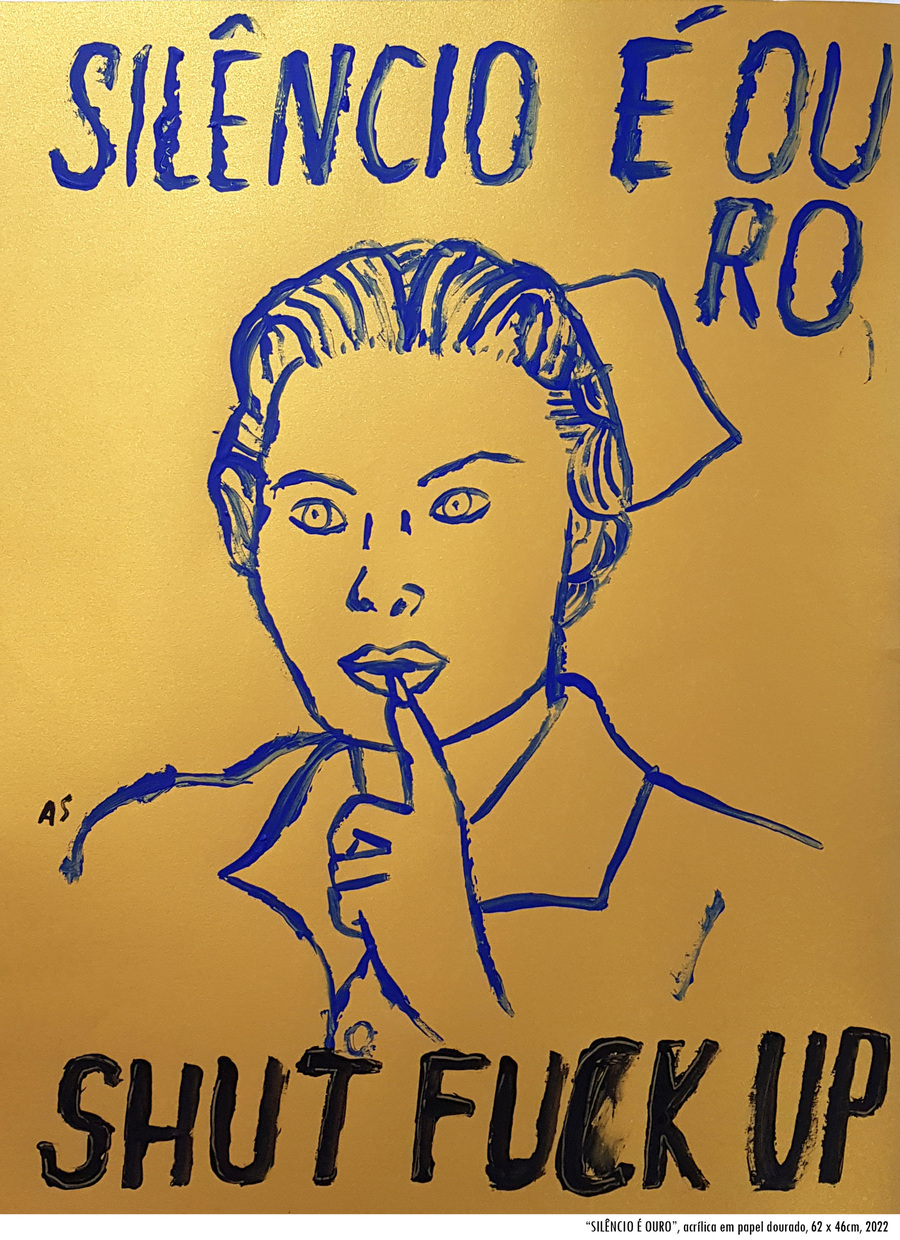 SILÊNCIO É OU
RO
AS
SHUT FUCK UP
“SILÊNCIO É OURO”, acrílica em papel dourado, 62 x 46cm, 2022